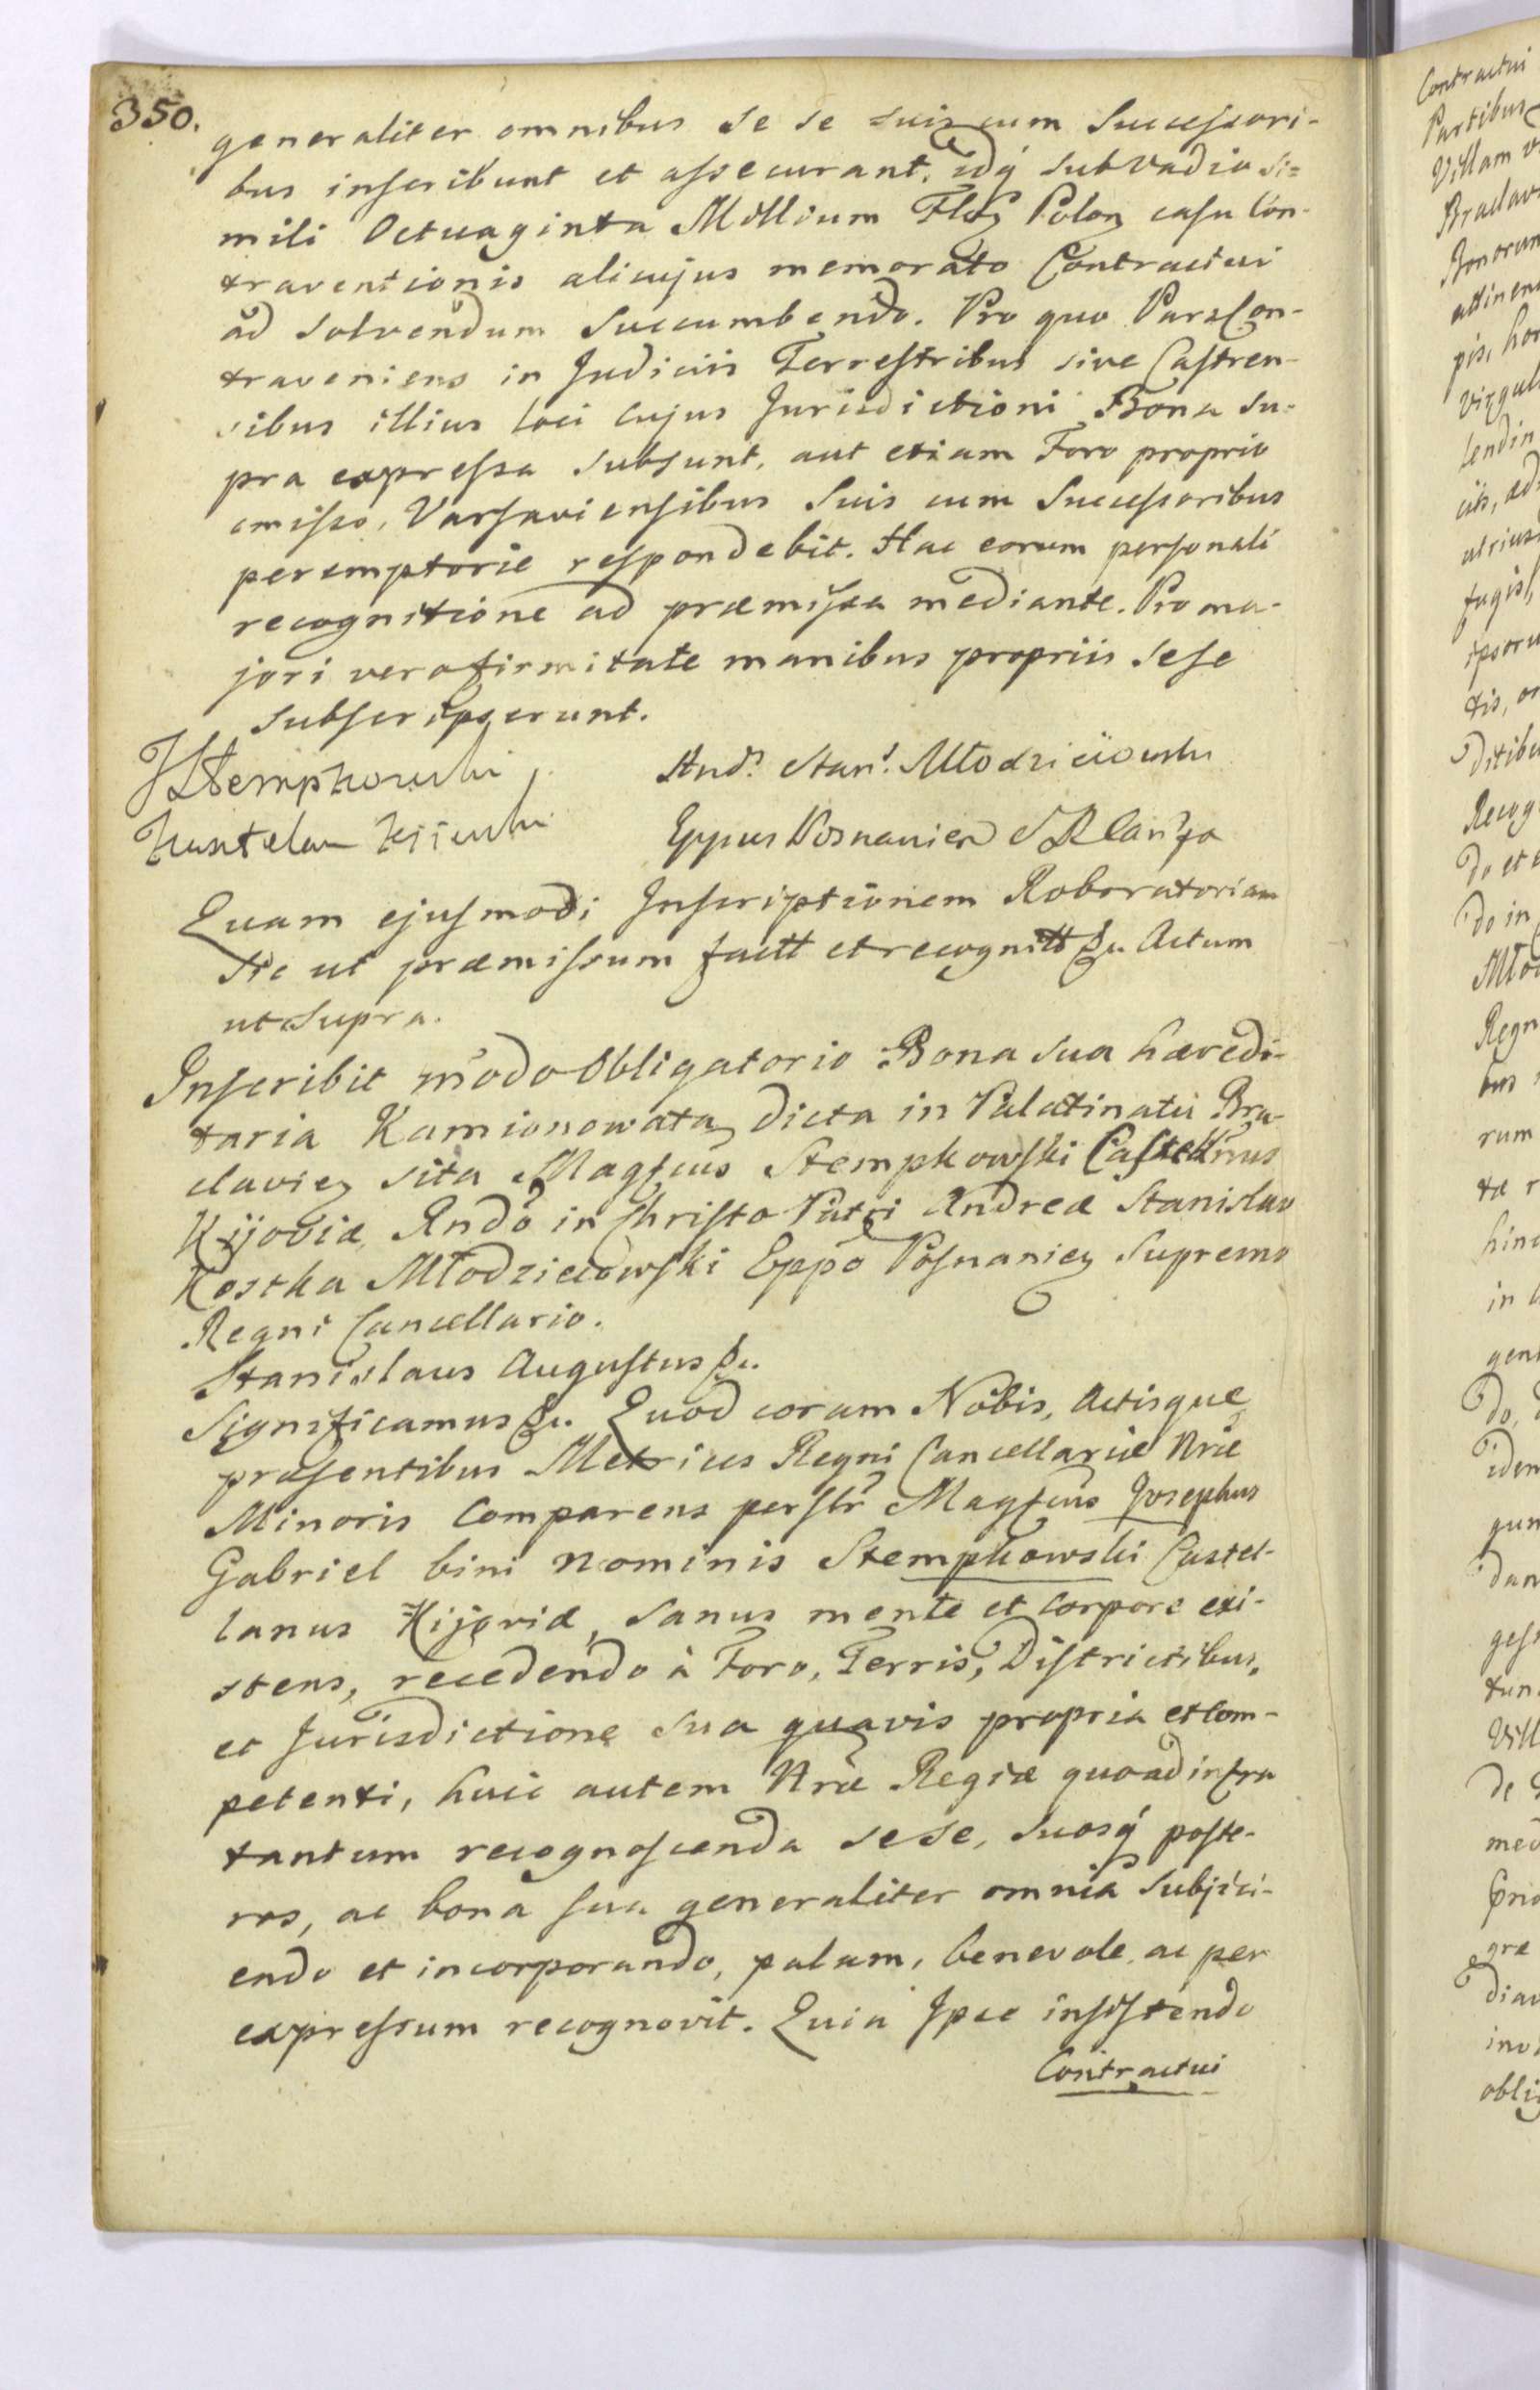 350.
generaliter omnibus se se suis cum Successori-
bus inscribunt et assecurant, idq́ sub vadio si=
mili Octuaginta Millium Flor Polon casu Con-
traventionis alicujus memorato Contractui
ad solvendum succumbendo. Pro quo Pars Con-
traveniens in Judiciis Terrestribus sive Castren-
sibus illius loci cujus Jurisdictioni Bona su-
pra expressa subsunt, aut etiam Foro proprio
omisso, Varsaviensibus Suis cum Successoribus
peremptorie respondebit. Hac eorum personali
recognitione ad præmissa mediante. Pro ma-
jori vero firmitate manibus propriis sese
subscripserunt.
JStempkowski
Kasztelan Kijowski
And. Stan. Młodzieiowski
Eppus Posnanien S R
Quam ejusmodi Inscriptionem Roboratoriam
sic ut præmissum factt et recognitt &c. Actum
ut supra.
Inscribit modo Obligatorio Bona sua hæredi-
taria Kamionowata dicta in Palatinatu Bra-
claviem sita Magfcus Stempkowski Castellnus
Kijoviæ, Rndo in Christo Patri Andreæ Stanislao
Kostka Młodzieiowski Eppo Posnanien Supremo
Regni Cancellario.
Stanislaus Augustus &c.
Significamus &c. Quod coram Nobis, Actisque
præsentibus Metrices Regni Cancellariæ Nræ
Minoris Comparens perslr Magfcus Josephus
Gabriel bini nominis Stempkowski Castel-
lanus Kijoviæ, sanus mente et corpore exi-
stens, recedendo à Foro, Terris, Districtibus,
et Jurisdictione sua quavis propria et com-
petenti, huic autem Nræ Regiæ quoad infra
tantum recognoscenda sese, suosq́ poste-
ros, ac bona sua generaliter omnia subjici-
endo et incorporando, palam, benevole ac per
expressum recognovit. Quia Ipse insistendo
Contractui
Contractui
Partibus
Villam v
Braclav
Bonorum
attinen
pis, hor
Virgul